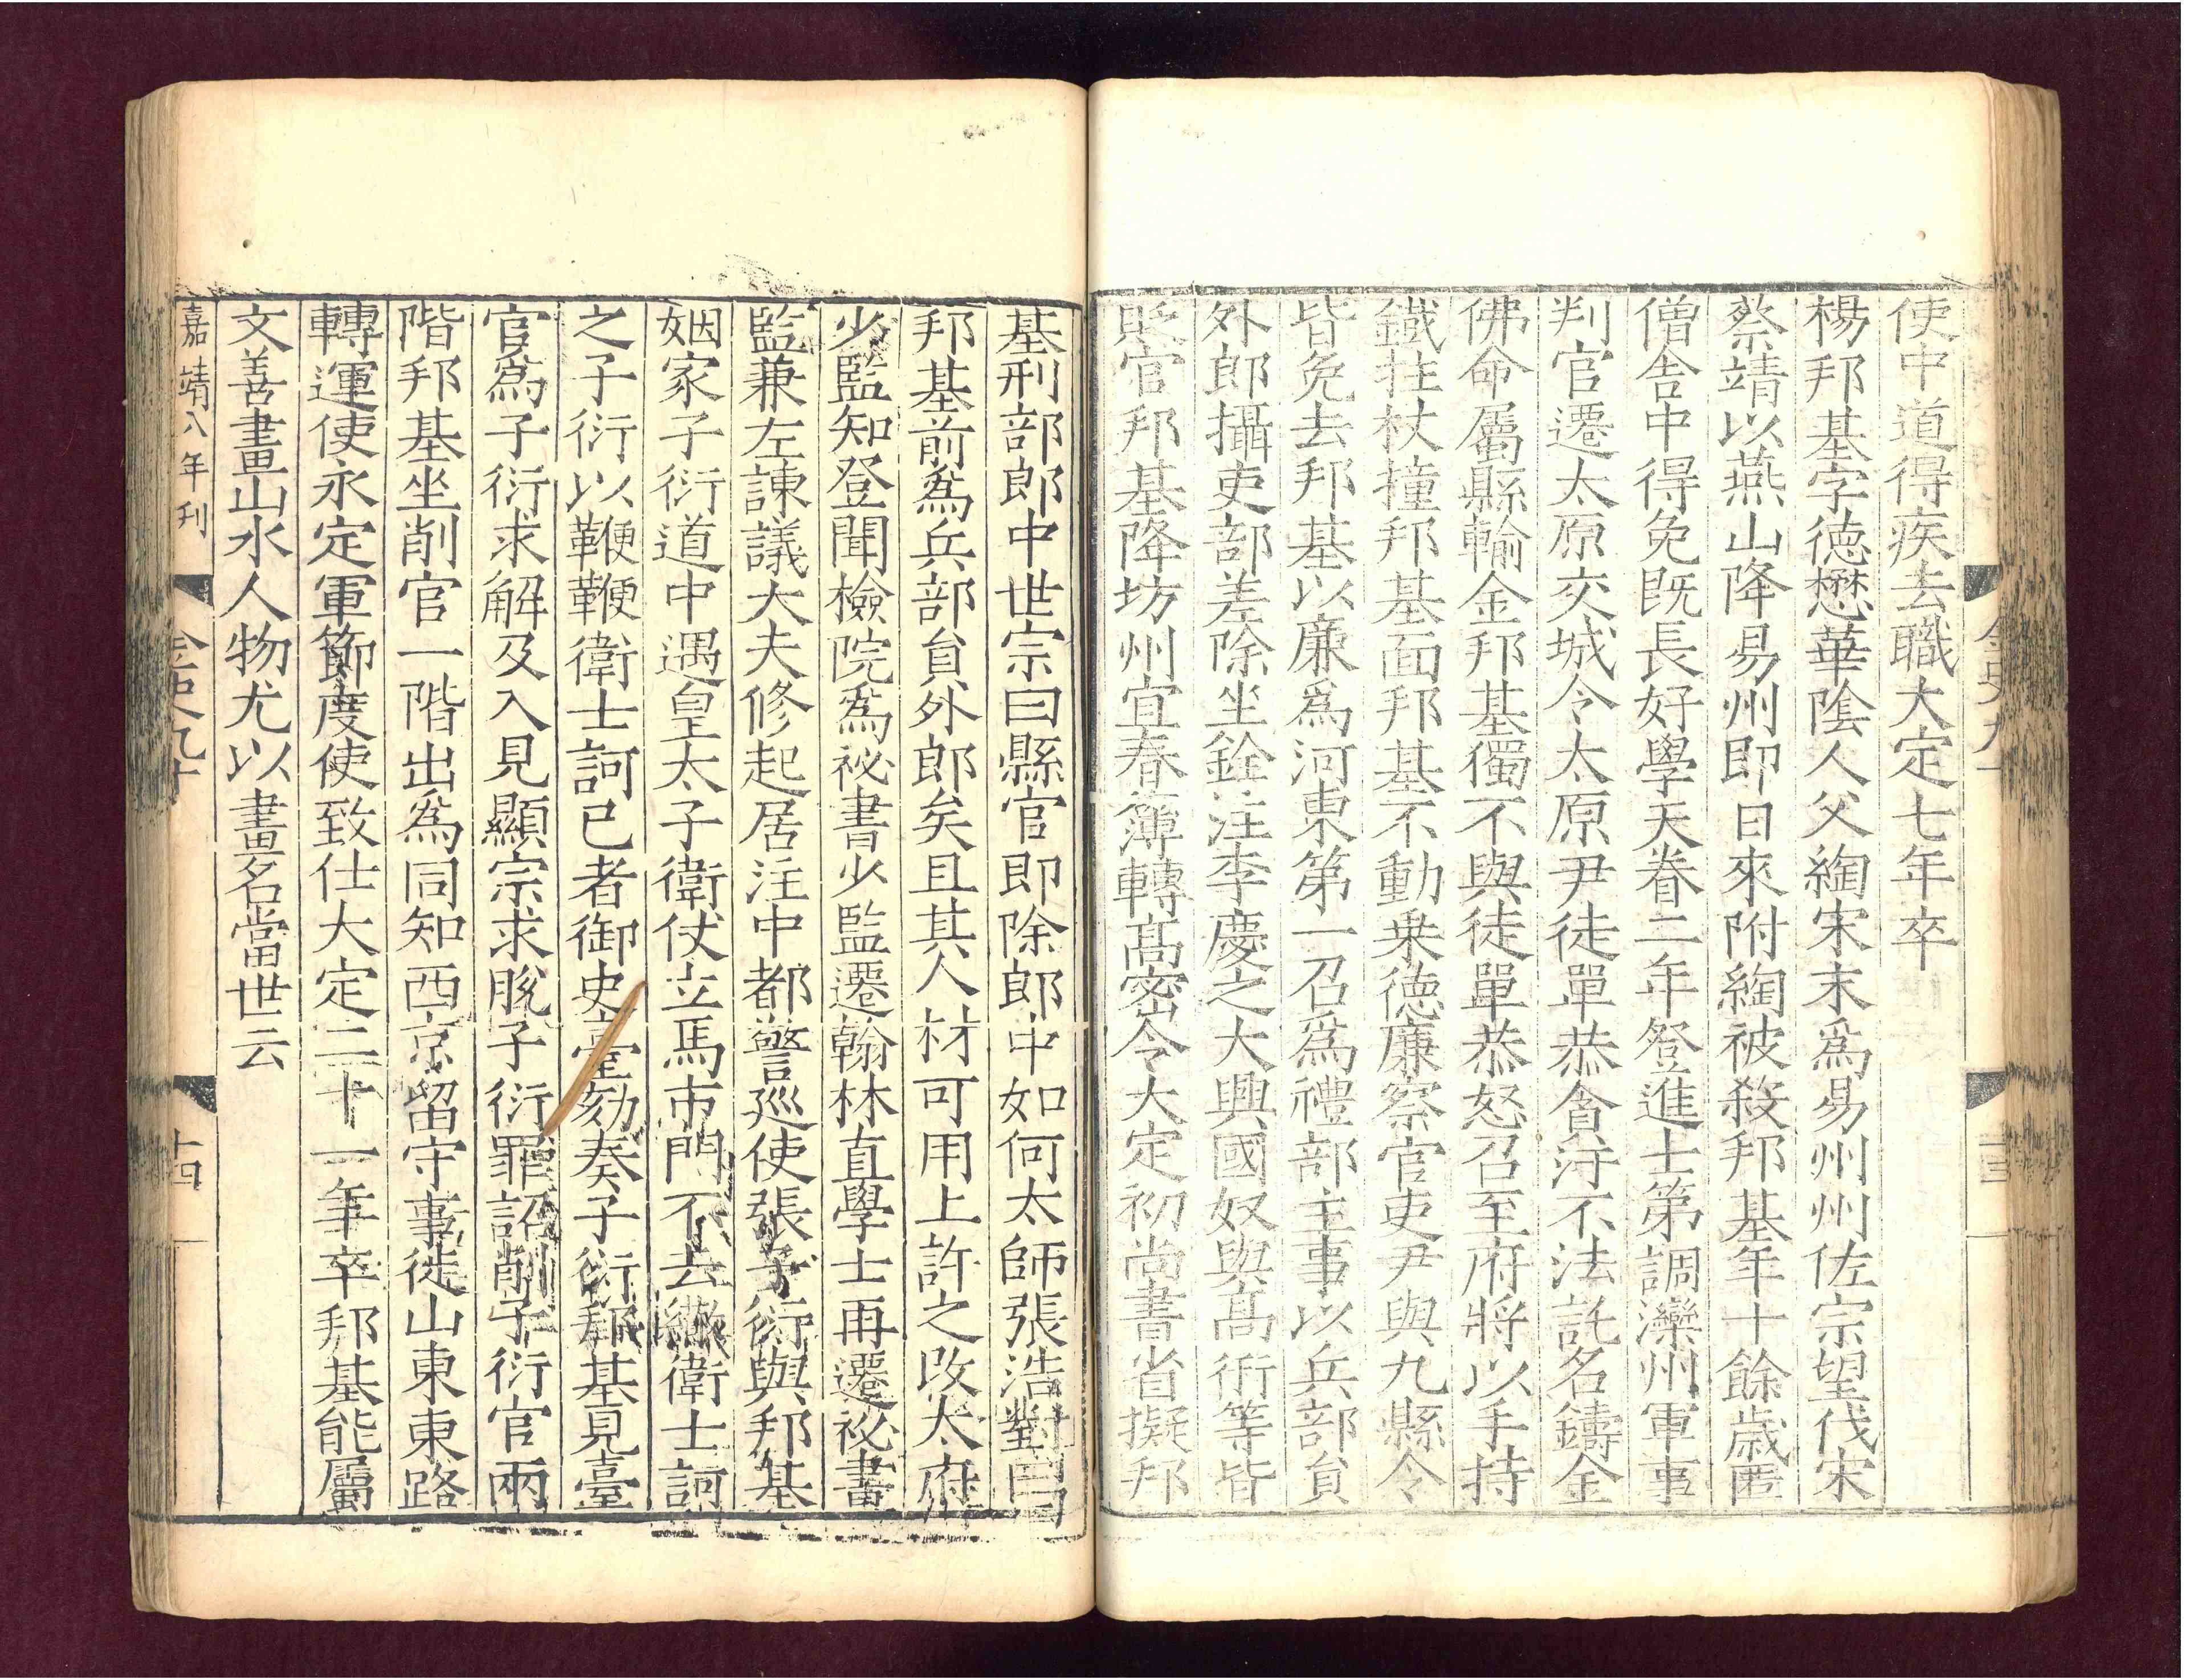 使中道得疾去職大定七年卒
楊邦基字德懋華陰人父綯宋末爲易州州佐宗望伐宋
蔡靖以燕山降易州即日來附綯被殺邦基年十餘歲匿
僧舍中得免既長好學天眷二年登進士第調灤州軍事
判官遷太原交城令太原尹徒單恭貪汙不法託名鑄金
佛命屬縣輸金邦基獨不與徒單恭怒召至府將以手持
鐵拄杖撞邦基面邦基不動秉德廉察官吏尹與九縣令
皆免去邦基以廉爲河東第一召爲禮部主事以兵部貟
外郎攝吏部差除坐銓注李慶之大興國奴與髙衎等皆
貶官邦基降坊州宜春簿轉髙密令大定初尚書省擬邦
基刑部郎中世宗曰縣官即除郎中如何太師張浩對曰
邦基前爲兵部貟外郎矣且其人材可用上許之改太府
少監知登聞檢院爲祕書少監遷翰林直學士再遷祕書
監兼左諫議大夫修起居注中都警廵使張子衍與邦基
姻家子衍道中遇皇太子衛仗立馬市門不去繖衛士訶
之子衍以鞭鞭衛士訶已者御史臺劾奏子衍邦基見臺
官爲子衍求解及入見顯宗求脫子衍罪詔削子衍官兩
階邦基坐削官一階出爲同知西京留守事徙山東東路
轉運使永定軍節度使致仕大定二十一年卒邦基能屬
文善畫山水人物尤以畫名當世云
嘉靖八年刊
金史九十
十四